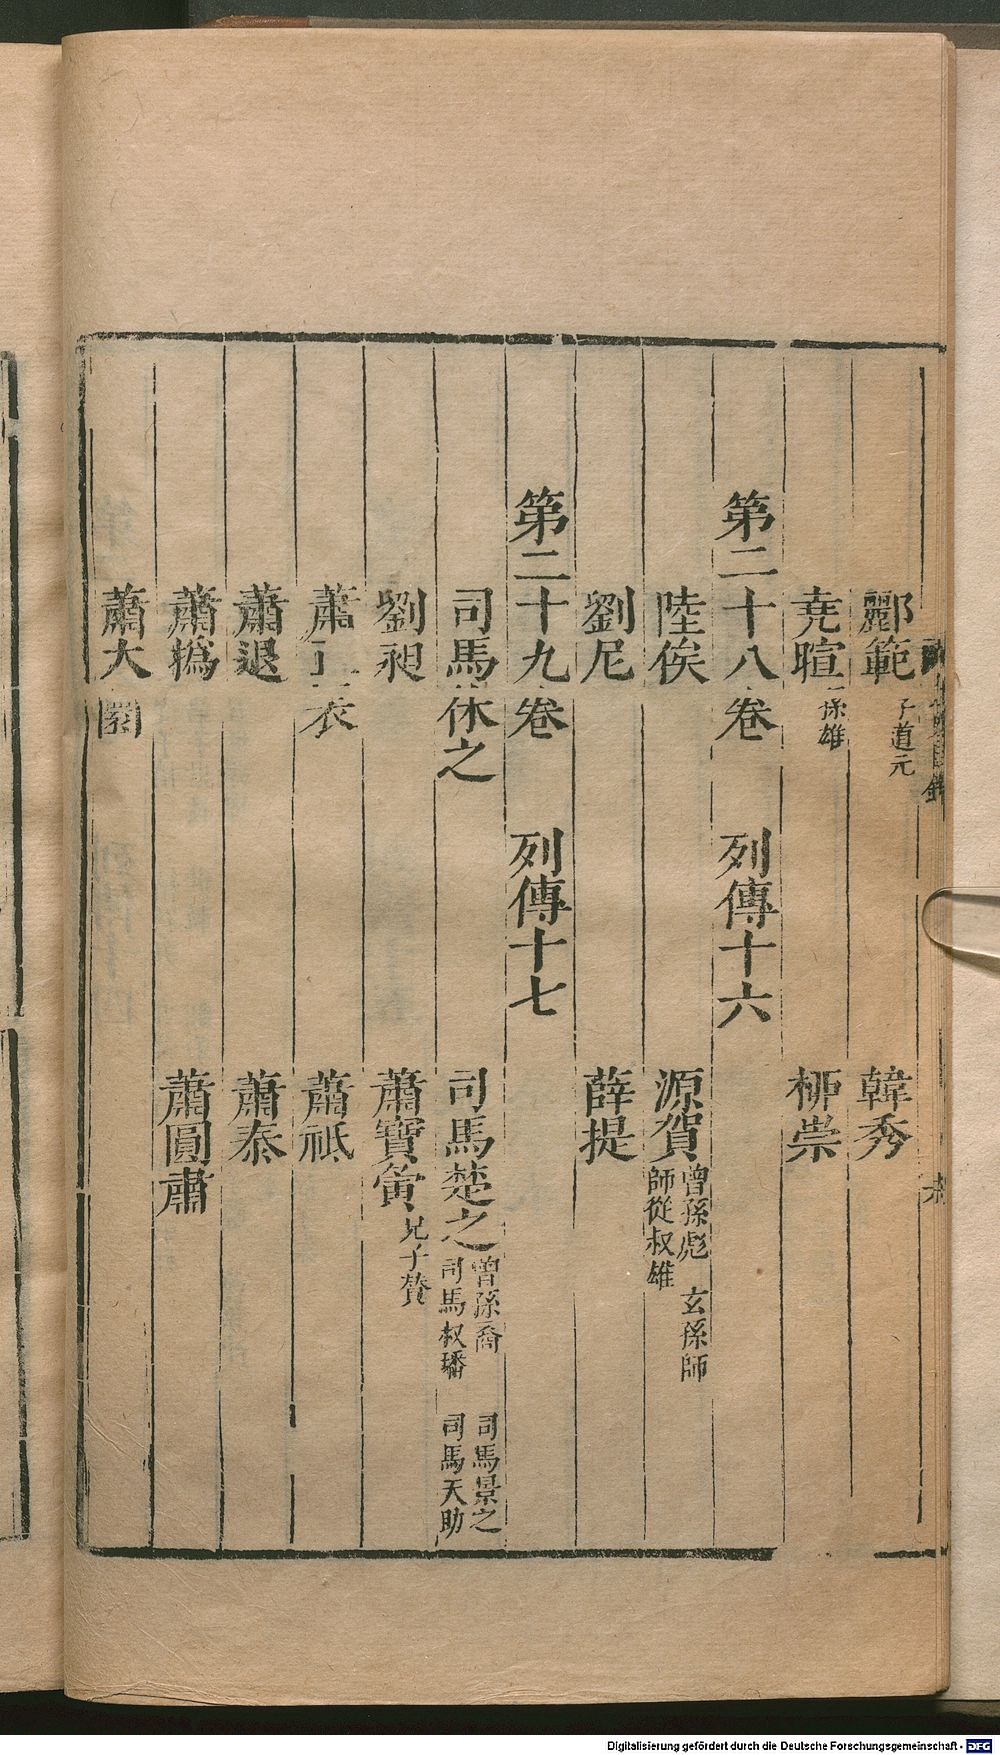 酈範 子道元 韓秀
堯暄 孫雄 栁崇
第二十八卷 列傳十六
陸俟 源賀 曾孫彪 玄孫師 師從叔雄
劉尼 薛提
第二十九卷 列傳十七
司馬休之 司馬楚之 曾孫裔 司馬景之 司馬叔璠 司馬天助
劉昶 蕭寶夤 兄子贊
蕭正表 蕭祗
蕭退 蕭泰
蕭撝 蕭圓肅
蕭大圜
Digitalisierung gefördert durch die Deutsche Forschungsgemeinschaft - DFG